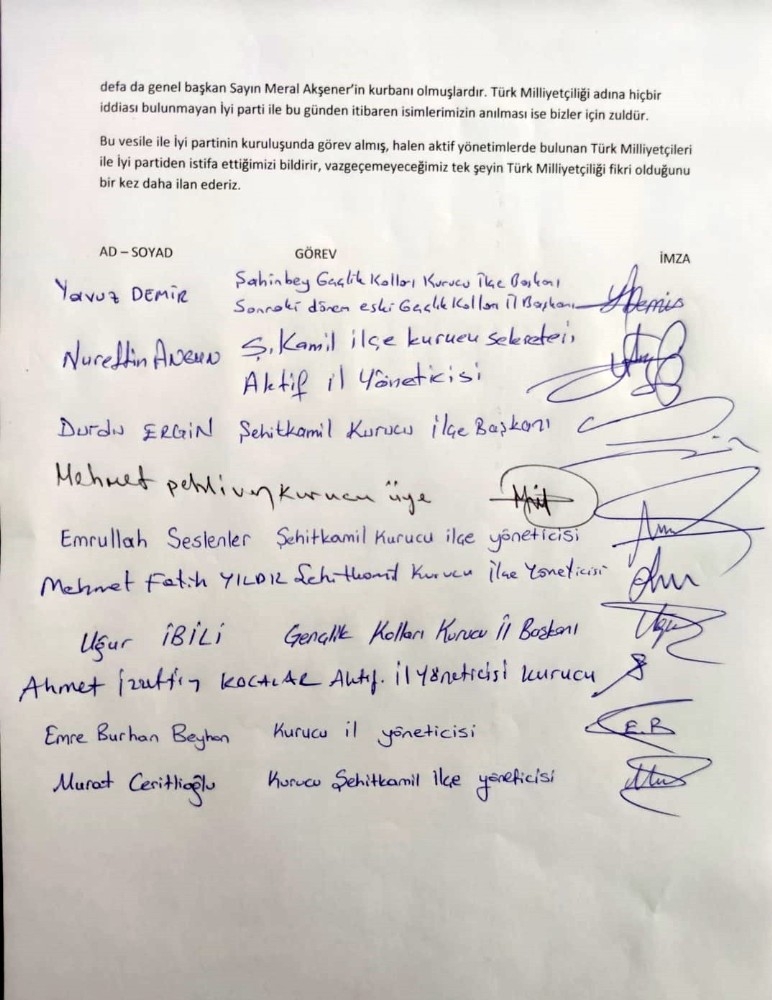 defa da genel başkan Sayın Meral Akşener'in kurbanı olmuşlardır. Türk Milliyetçiliği adına hiçbir
iddiası bulunmayan İyi parti ile bu günden itibaren isimlerimizin anılması ise bizler için zuldür.
Bu vesile ile İyi partinin kuruluşunda görev almış, halen aktif yönetimlerde bulunan Türk Milliyetçileri
ile İyi partiden istifa ettiğimizi bildirir, vazgeçemeyeceğimiz tek şeyin Türk Milliyetçiliği fikri olduğunu
bir kez daha ilan ederiz.
AD – SOYAD GÖREV İMZA
Yavuz DEMİR Şahinbey Gençlik Kolları Kurucu İlçe Başkanı
Sonraki dönem eski Gençlik Kolları İl Başkanı
Nurettin Ş. Kamil ilçe kurucu sekreteri
Aktif il Yöneticisi
Durdu ERGİN Şehitkamil Kurucu İlçe Başkanı
Mehmet pehlivan kurucu üye
Emrullah Seslenler Şehitkamil Kurucu ilçe yöneticisi
Mehmet Fatih YILDIZ Şehitkamil Kurucu İlçe Yöneticisi
Uğur İBİLİ Gençlik Kolları Kurucu İl Başkanı
Ahmet İzettin KOCALAR Aktif. İl Yöneticisi kurucu
Emre Burhan Beyhan Kurucu il yöneticisi E.B
Murat Ceritlioğlu Kurucu Şehitkamil ilçe yöneticisi